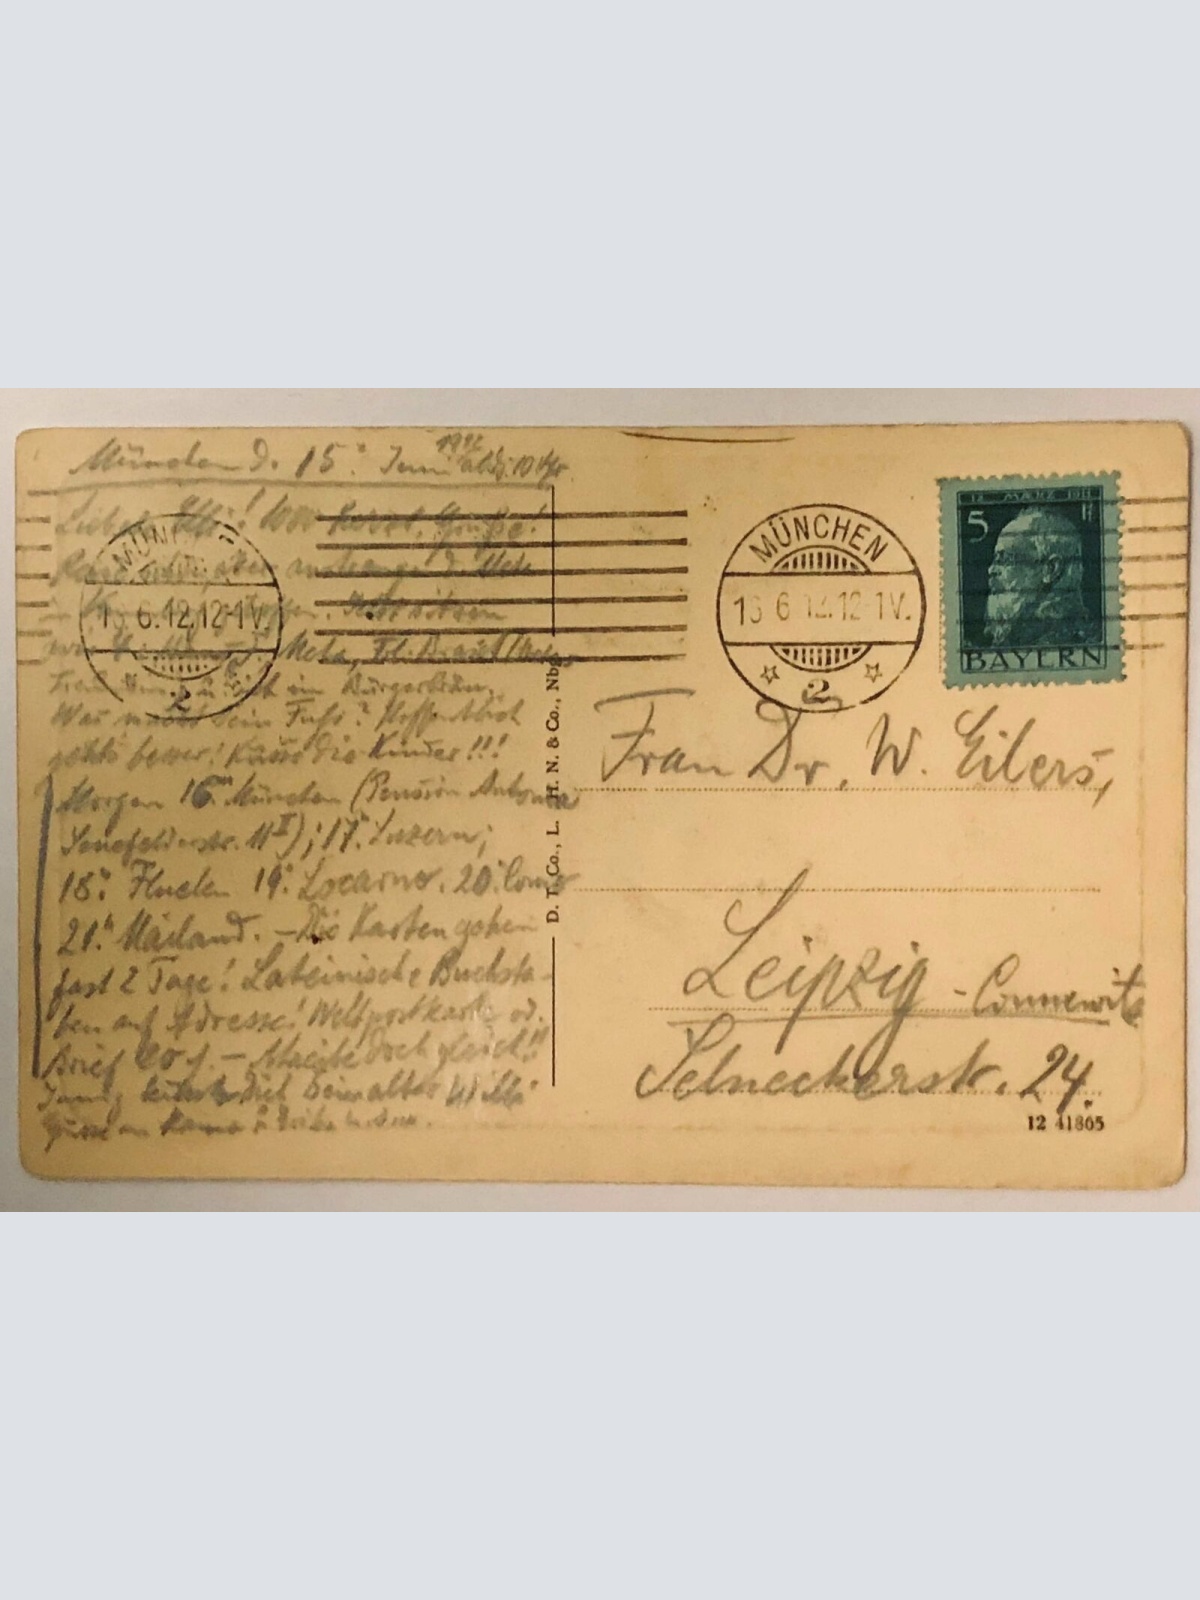 München d. 15. Juni 1912 abds. 10 Uhr
Elli! kurze Grüße!
Meta
wir Meta, Frl.
Frau im Bürgerbräu.
Was macht Dein Fuß? Hoffentlich
gehts besser! Küsse die Kinder!!!
Morgen 16. München (Pension Antonia
Senefelderstr. 11 II); 17. Luzern;
18. Fluelen 19. Locarno. 20. Como
21. Mailand. – Die Karten gehen
fast 2 Tage! Lateinische Buchsta-
ben auf Adresse! Weltpostkarte od.
Brief – Schreibe doch gleich!!
Innig küsst Dich Dein alter Willi
MÜNCHEN
6.12.12-1V.
2
D. T. Co., L. H. N. & Co., Nbg.
MÜNCHEN
6 12.12-1V.
2
12 MÄRZ 1911
5
BAYERN
Frau Dr. W. Eilers,
Leipzig - Connewitz
Schneckerstr. 24.
12 41865